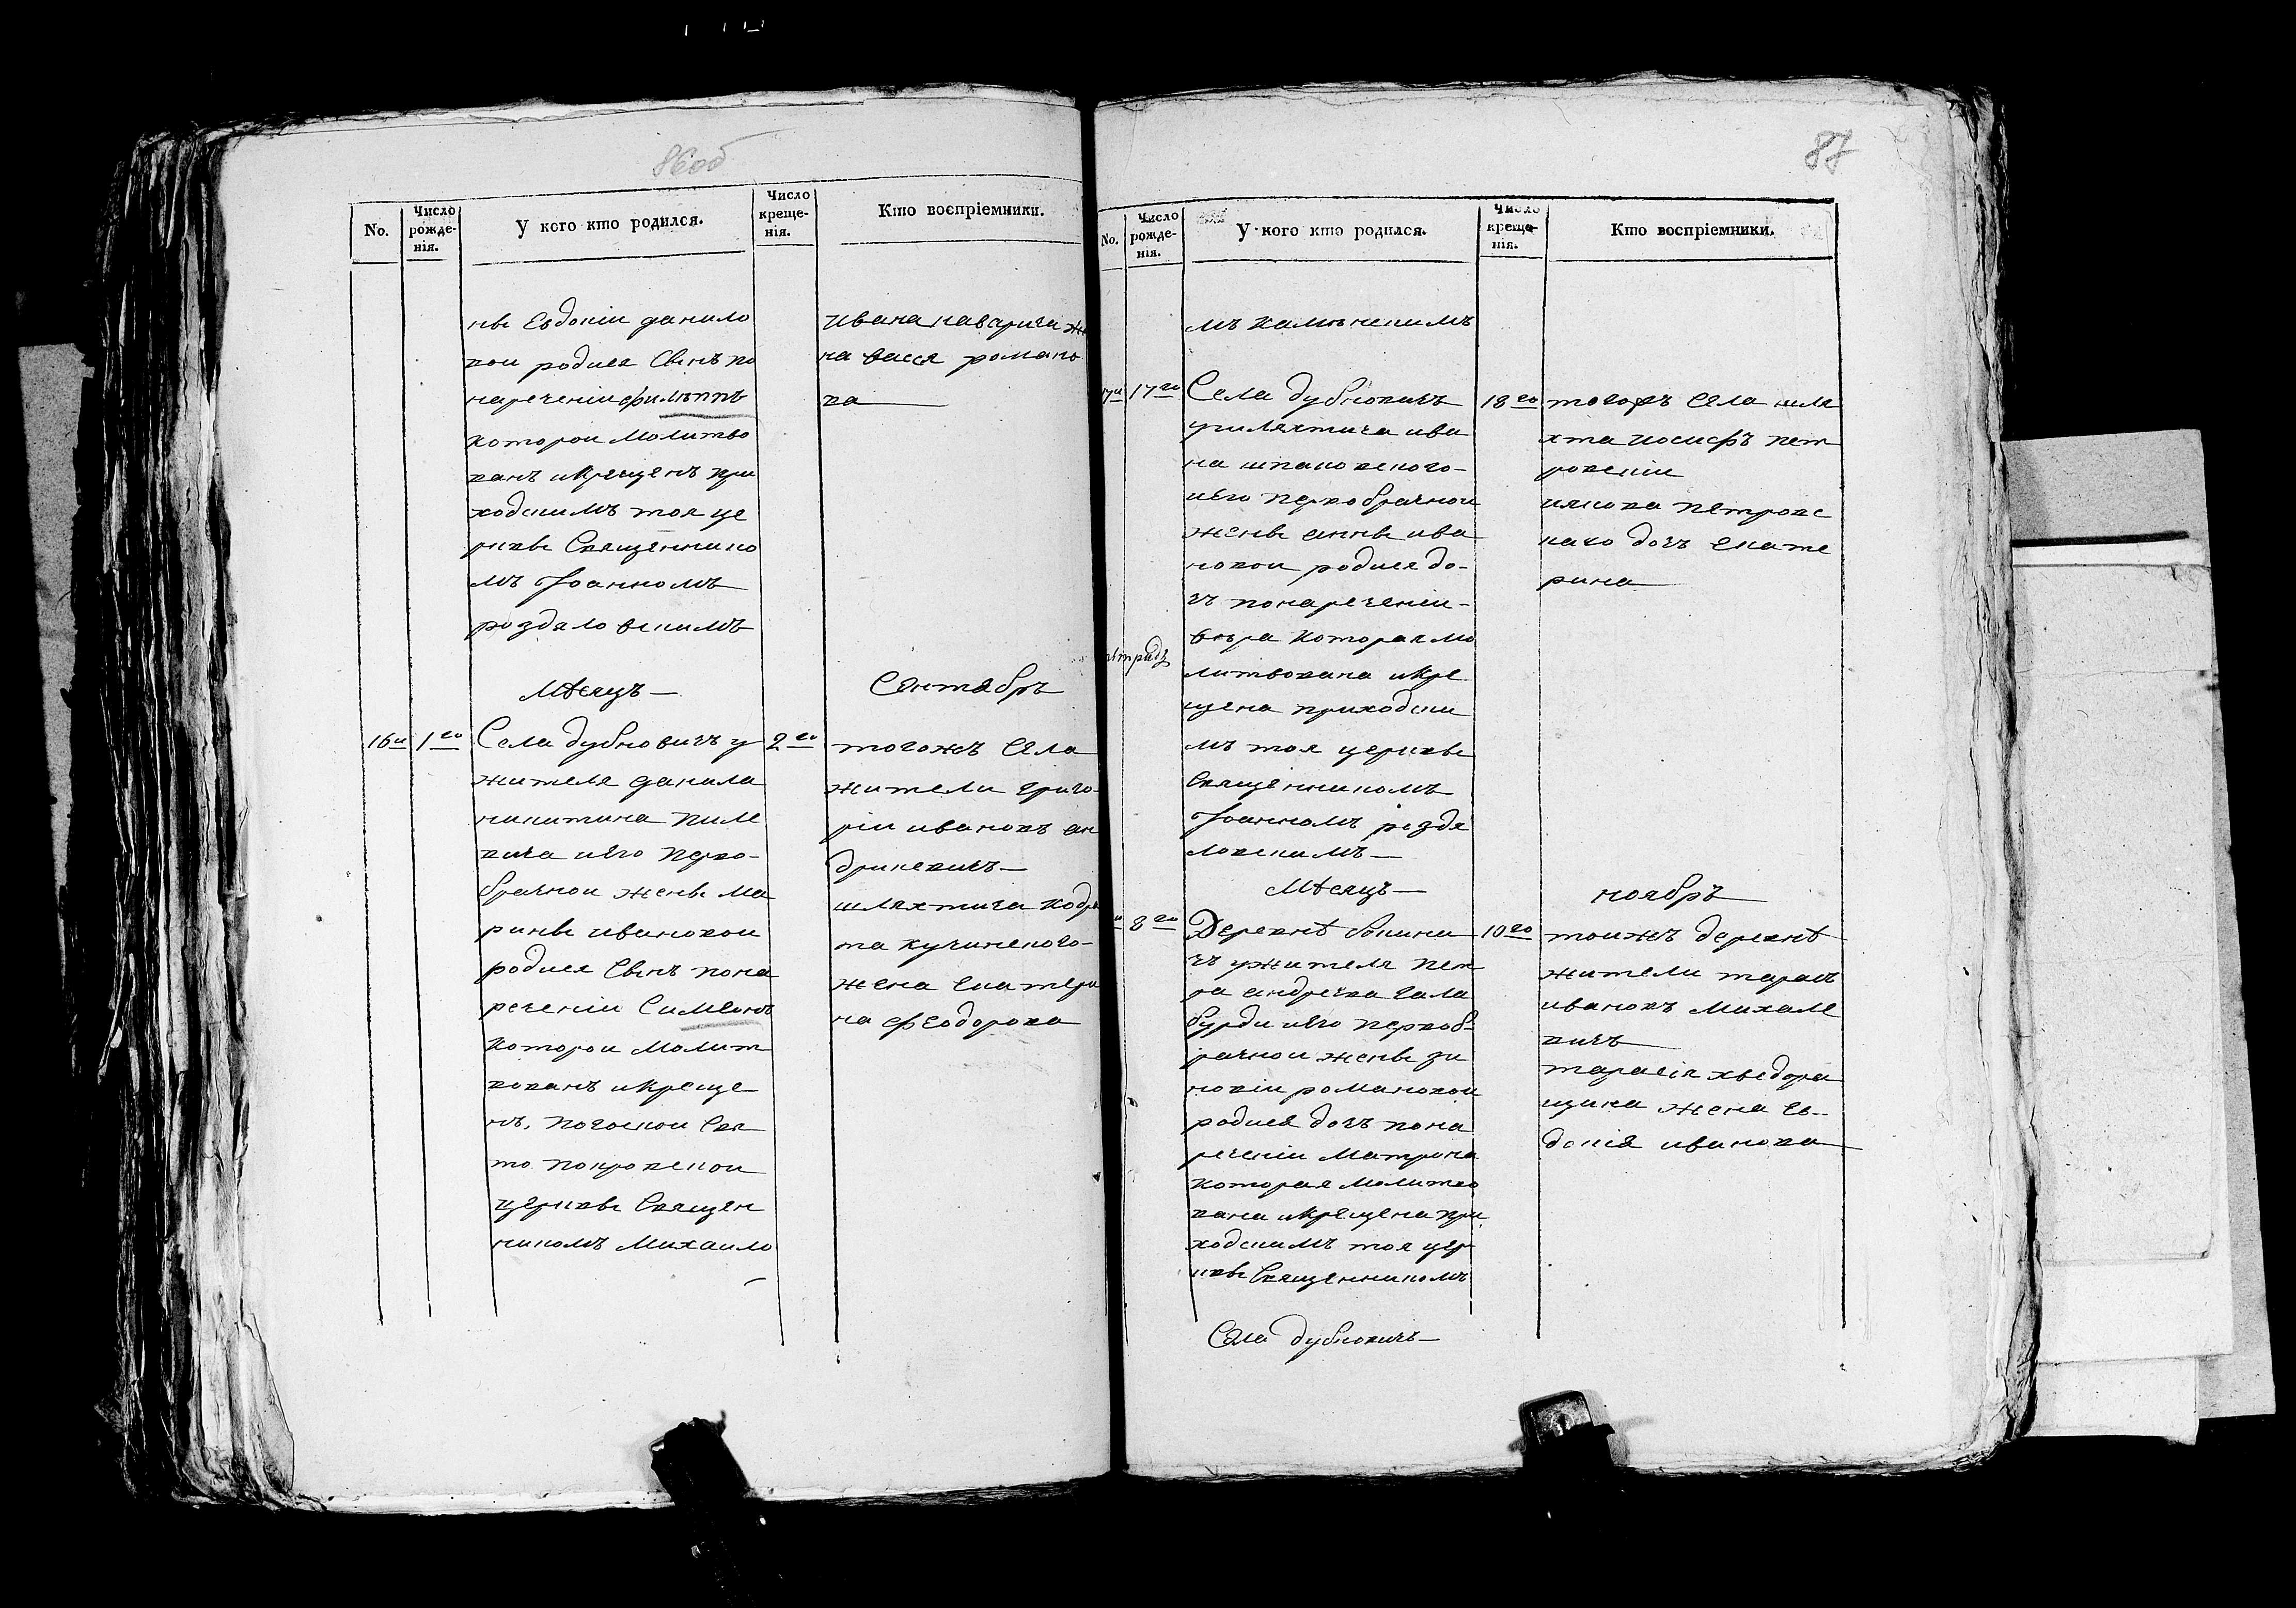 86об
No.
Число рожде-нія.
У кого кто родился.
Число креще-нія.
Кто воспріемники.
нѣ Евдокіи данило
вои родися Сынъ по
нареченіи филиппъ
которои молитво
ванъ икрещенъ при
ходскимъ тоя це
рквы Священнико
мъ Іоанномъ
роздяловскимъ
Ивана наварича же
на васся романо
ва
Мѣсяцъ
Сентябрь
16и
1го
Села дубновичъ у
жителя данила
никитина пиле
вича иѣго перво-
брачнои жены ма
рины ивановои
родися Сынъ пона
речении Симеонъ
которои молит
вованъ икреще
нъ, погоскои Свя
то покровскои
церквы Священ
никомъ Михаило
2го
тогожъ Села
жители григо
ріи ивановъ ан
дриевичъ
шляхтича кодра
та кучинского
жена Екатери
на феодорова
87
No.
Число рожде-нія.
У кого кто родился.
Число креще-нія.
Кто воспріемники.
мъ Каминскимъ
17и
17го
Села дубновичъ
ушляхтича ива
на шпаковского
иѣго первобрачнои
жены анны ива
новои родися до-
чъ понаречении
вѣра которая мо
литвована икре
щена приходски
мъ тоя церквы
Священникомъ
Іоанномъ роздя
ловскимъ
18го
тогожъ Села шля
хта иосифъ пет
ровскіи
петровс
каго дочъ Екате
рина
Мѣсяцъ
ноябрь
8го
Деревнѣ
чъ ужителя пет
ра андреева гала
бурди иѣго первоб-
рачнои жены зи
новіи романовои
родися дочъ пона
речении Матрона
которая молитво
вана икрещена при
ходскимъ тоя цер
квы Священникомъ
10го
тоижъ деревнѣ
жители тарасъ
ивановъ михале
вичъ
тарасія хведора
щика жена Ев-
докія иванова
Села дубновичъ